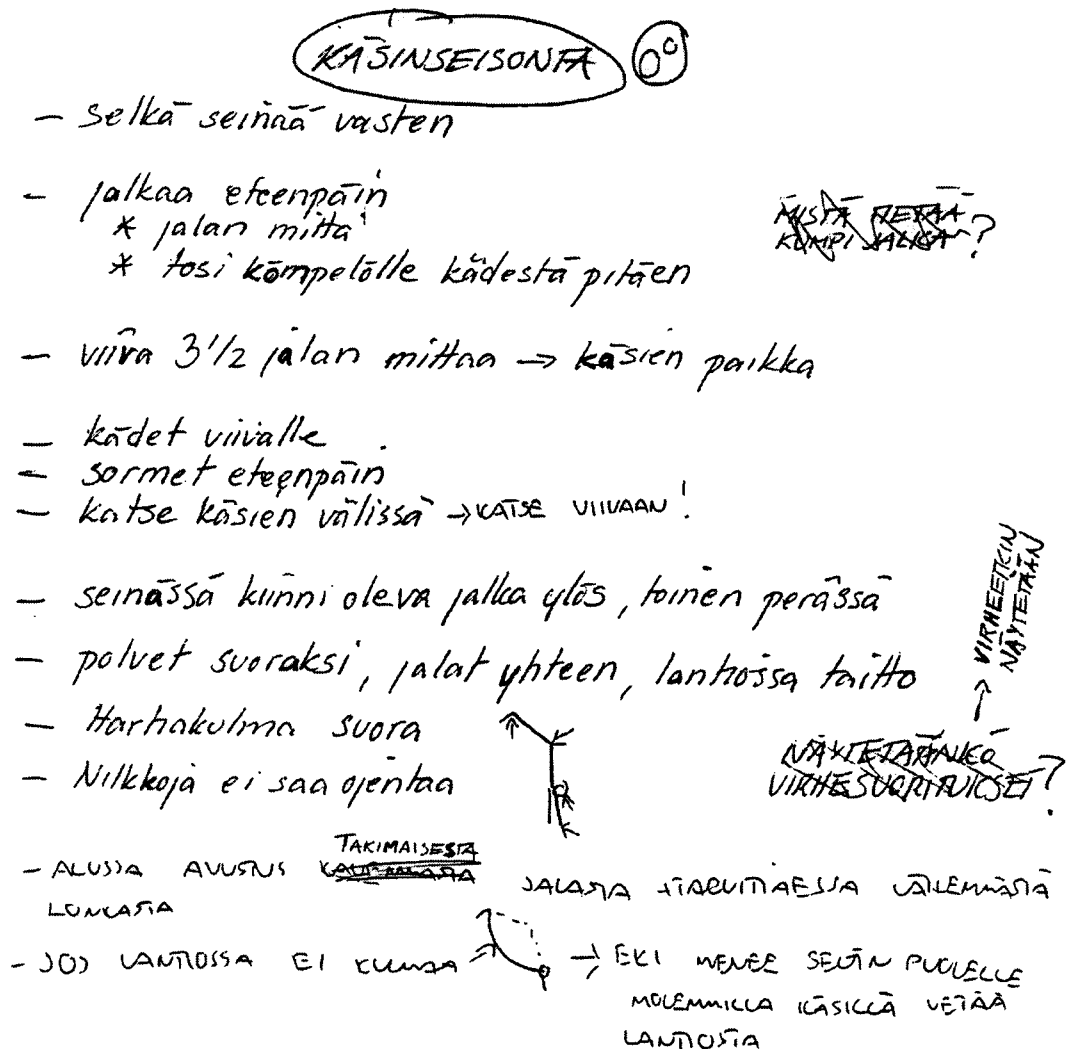 KÄSINSEISONTA
- selkä seinää vasten
- jalkaa eteenpäin
* jalan mitta
* tosi kömpelölle kädestä pitäen
MISTÄ TIETÄÄ
KUMPI JALKA ?
- viiva 3 1/2 jalan mittaa → käsien paikka
- kädet viivalle
- sormet eteenpäin
- katse käsien välissä → KATSE VIIVAAN !
- seinässä kiinni oleva jalka ylös, toinen perässä
→ VIRHEETKIN
NÄYTETÄÄN
- polvet suoraksi, jalat yhteen, lantiossa taitto
- Hartiakulma suora
- Nilkkoja ei saa ojentaa
NÄYTETÄÄNKÖ
VIRHESUORITUKSET ?
- ALUSSA AVUSTUS TAKIMAISESTA JALASTA + TARVITTAESSA
LONKASTA
- JOS LANTIOSSA EI KULMAA → EKI MENEE SELÄN PUOLELLE
MOLEMMILLA KÄSILLÄ VETÄÄ
LANTIOSTA